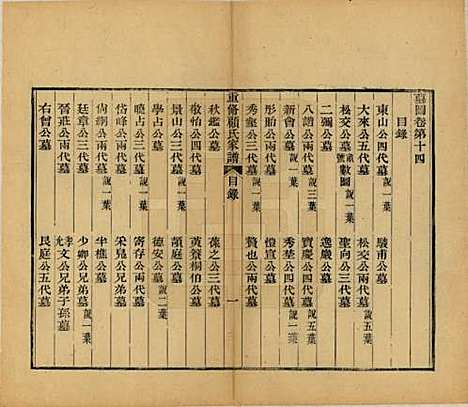 墓圖卷第十四
目錄
東山公四代墓說一葉 駿甫公墓
大來公五代墓 松交公兩代墓
松交公墓 數圖 聖向公三代墓
二彌公墓 逸巖公墓
八諧公四代墓說一葉 寶慶公四代墓說五葉
新會公墓說一葉 秀埜公四代墓說五葉
彤胎公兩代墓 憺宜公墓
秀壑公三代墓說一葉 贅也公墓
重修顧氏家譜 目錄 一
秋鑑公墓 葆之公三代墓
敬怡公四代墓 英蔡桐伯公墓
景山公三代墓 韻庭公墓
學占公墓 德安公墓說二葉
曉占公三代墓 寄存公兩代墓
岱峰公兩代墓 采凫公兄弟墓
尙綱公兩代墓 半樵公墓說一葉
廷章公三代墓 少卿公兄弟墓說一葉
晉莊公兩代墓 孝文公兄弟子孫墓
右曾公墓 艮庭公五代墓